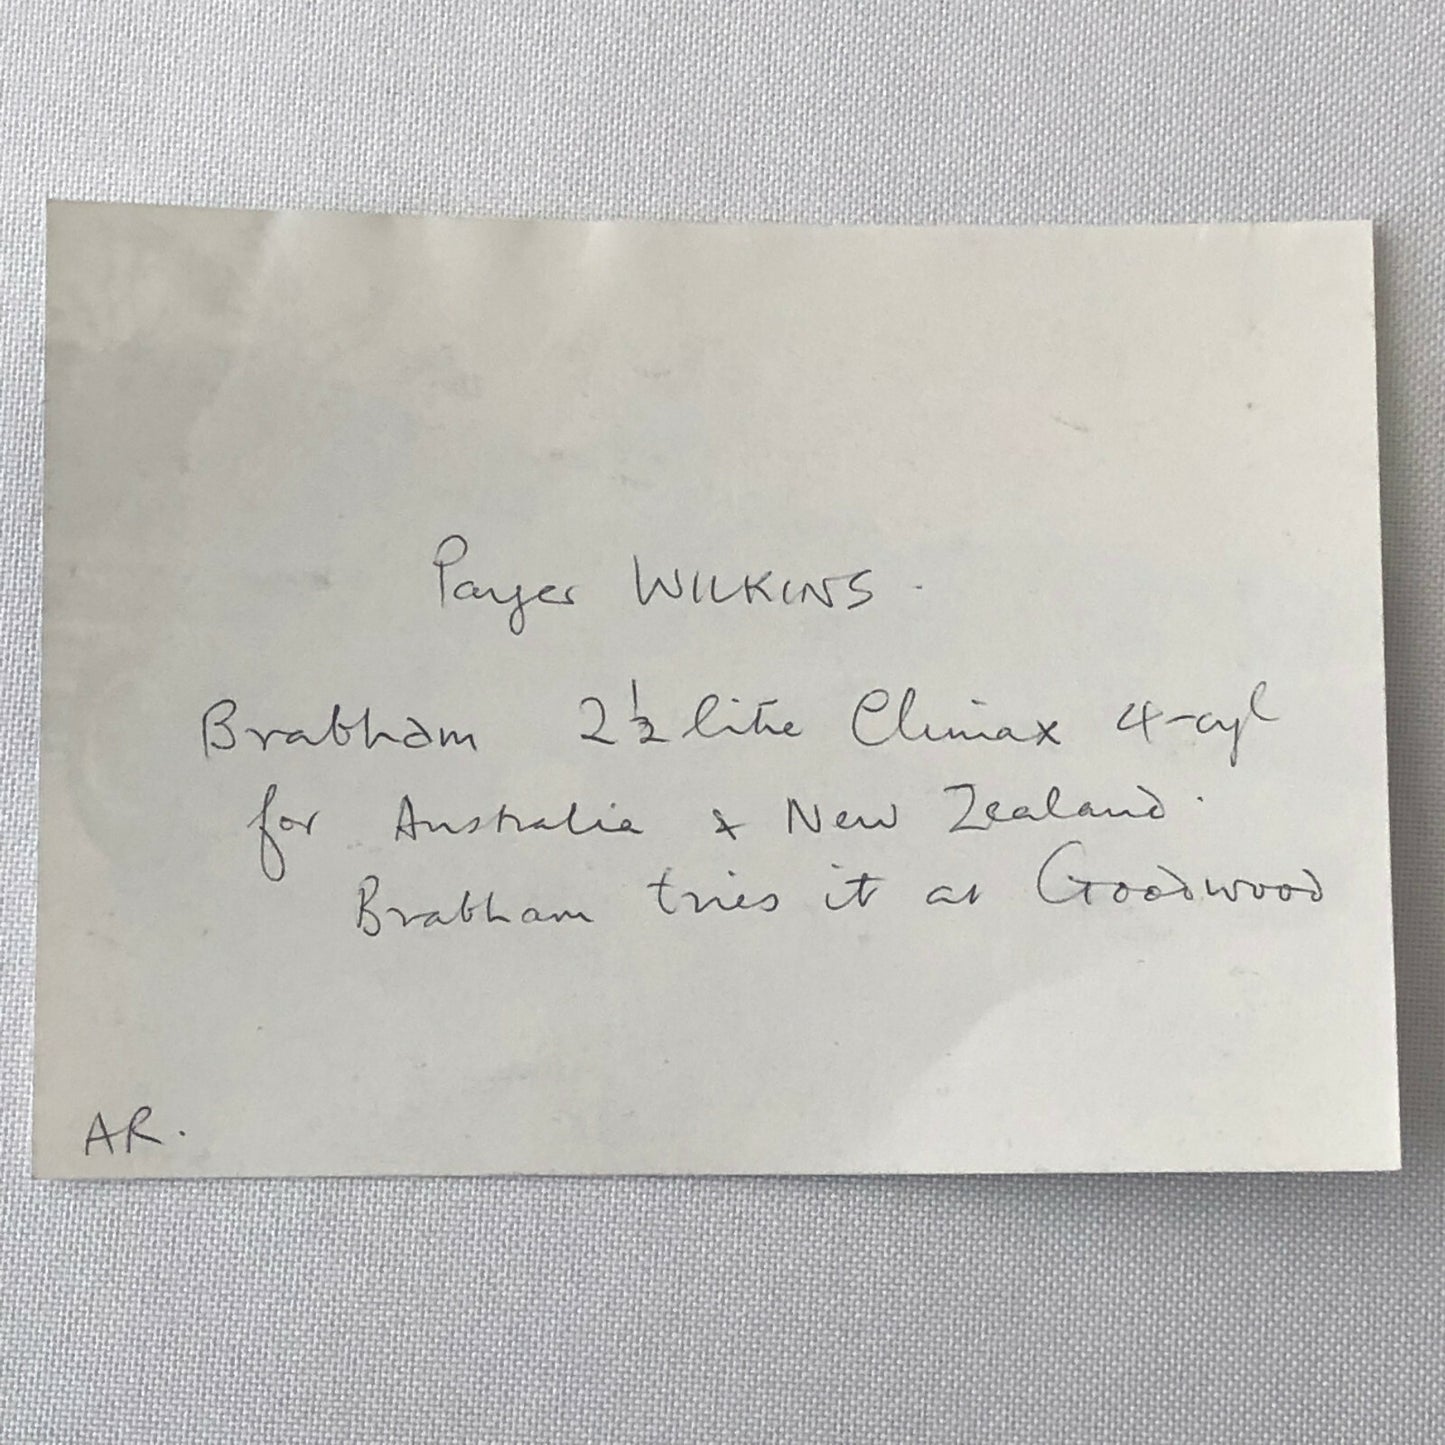 Payer WILKINS.
Brabham 2½ litre Climax 4-cyl
for Australia & New Zealand.
Brabham tries it at Goodwood
AR.